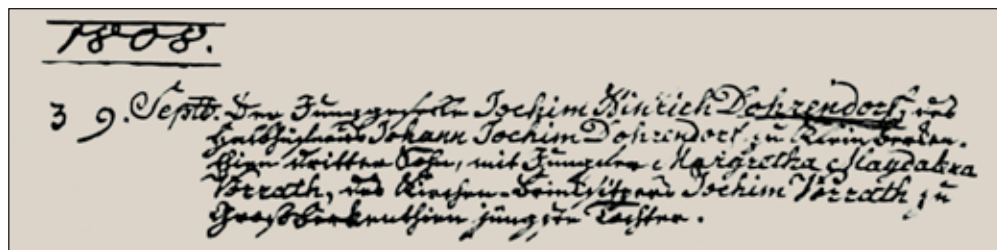 1808.
3 9. Septb. Der Junggeselle Jochim Hinrich Dohrendorf, des
Halbhufners Johann Jochim Dohrendorf zu Klein Berken-
thien dritter Sohn, mit Jungfer Margretha Magdalena
Vorrath, des Kirchen-Beinsitzers Jochim Vorrath zu
Großberkenthien jüngste Tochter.